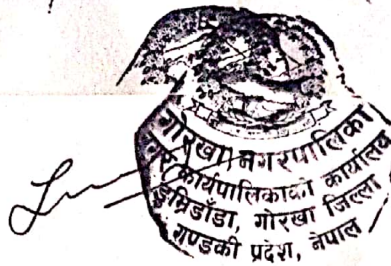 गोरखा नगरपालिका
नगर कार्यपालिकाको कार्यालय
डुम्रिडाँडा, गोरखा जिल्ला
गण्डकी प्रदेश, नेपाल